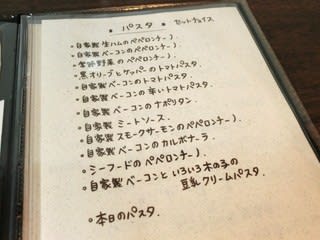 • パスタ • セットチョイス
• 自家製 生ハムのペペロンチーノ.
• 自家製 ベーコンのペペロンチーノ.
• 野菜のペペロンチーノ.
• 黒オリーブとケッパーのトマトパスタ.
• 自家製 ベーコンのトマトパスタ.
• 自家製 ベーコンの辛いトマトパスタ.
• 自家製 ベーコンのナポリタン.
• 自家製 ミートソース.
• 自家製 スモークサーモンのペペロンチーノ.
• 自家製 ベーコンのカルボナーラ.
• シーフードのペペロンチーノ.
• 自家製 ベーコンと いろいろ木の子の
豆乳クリームパスタ.
• 本日のパスタ.